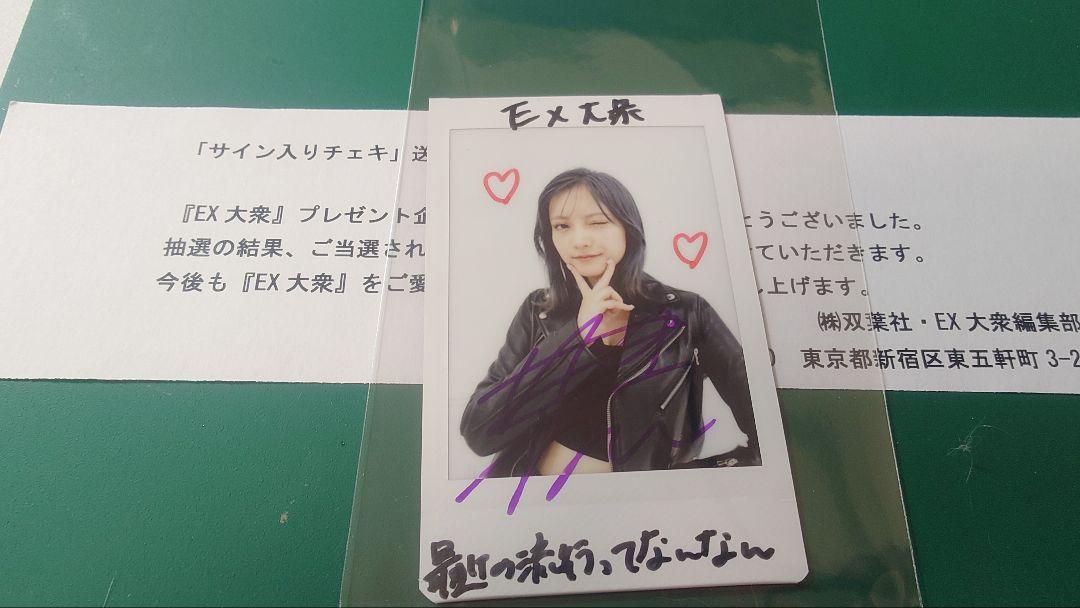 EX大衆
最近の流行ってなんなん
「サイン入りチェキ」送
『EX大衆』プレゼント企 とうございました。
抽選の結果、ご当選され ていただきます。
今後も『EX大衆』をご愛 し上げます。
㈱双葉社・EX大衆編集部
東京都新宿区東五軒町3-2